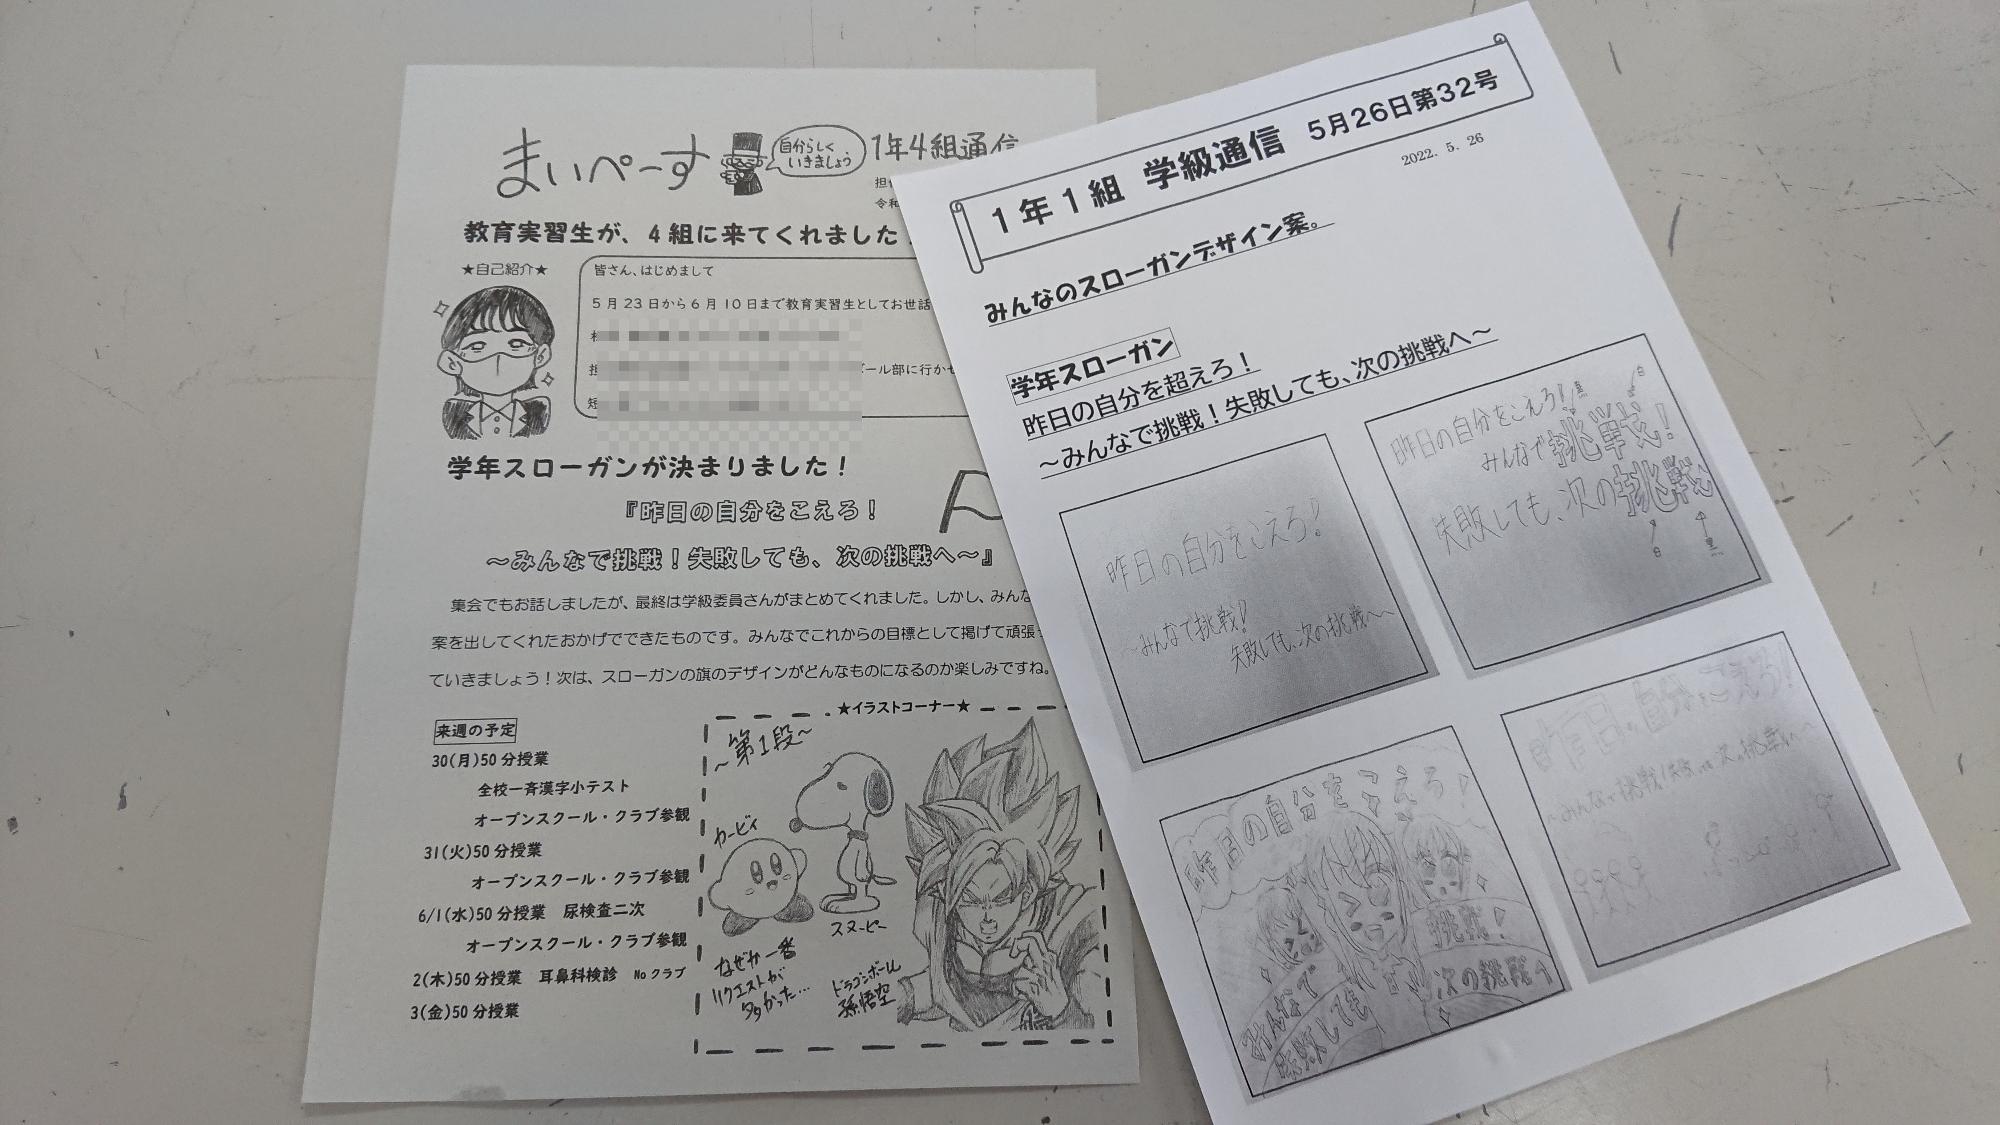 まいぺーす
自分らしく
いきましょう
1年4組通信
教育実習生が、4組に来てくれました
★自己紹介★
皆さん、はじめまして
5月23日から6月10日まで教育実習生としてお世話
担
ール部に行かせ
短
学年スローガンが決まりました！
『昨日の自分をこえろ！
～みんなで挑戦！失敗しても、次の挑戦へ～』
集会でもお話しましたが、最終は学級委員さんがまとめてくれました。しかし、みんな
案を出してくれたおかげでできたものです。みんなでこれからの目標として掲げて頑張っ
ていきましょう！次は、スローガンの旗のデザインがどんなものになるのか楽しみですね。
来週の予定
30(月)50分授業
全校一斉漢字小テスト
オープンスクール・クラブ参観
31(火)50分授業
オープンスクール・クラブ参観
6/1(水)50分授業　尿検査二次
オープンスクール・クラブ参観
2(木)50分授業　耳鼻科検診　Noクラブ
3(金)50分授業
★イラストコーナー★
～第1段～
カービィ
スヌーピー
なぜか一番
リクエストが
多かった…
ドラゴンボール
孫悟空
1年1組 学級通信 5月26日第32号
2022. 5. 26
みんなのスローガンデザイン案。
学年スローガン
昨日の自分を超えろ！
～みんなで挑戦！失敗しても、次の挑戦へ～
昨日の自分をこえろ！
～みんなで挑戦！
失敗しても、次の挑戦へ～
昨日の自分をこえろ！
みんなで挑戦！
失敗しても、次の挑戦へ
白
昨日の自分をこえろ！
挑戦！
次の挑戦へ
みんなで
失敗しても
昨日の自分をこえろ！